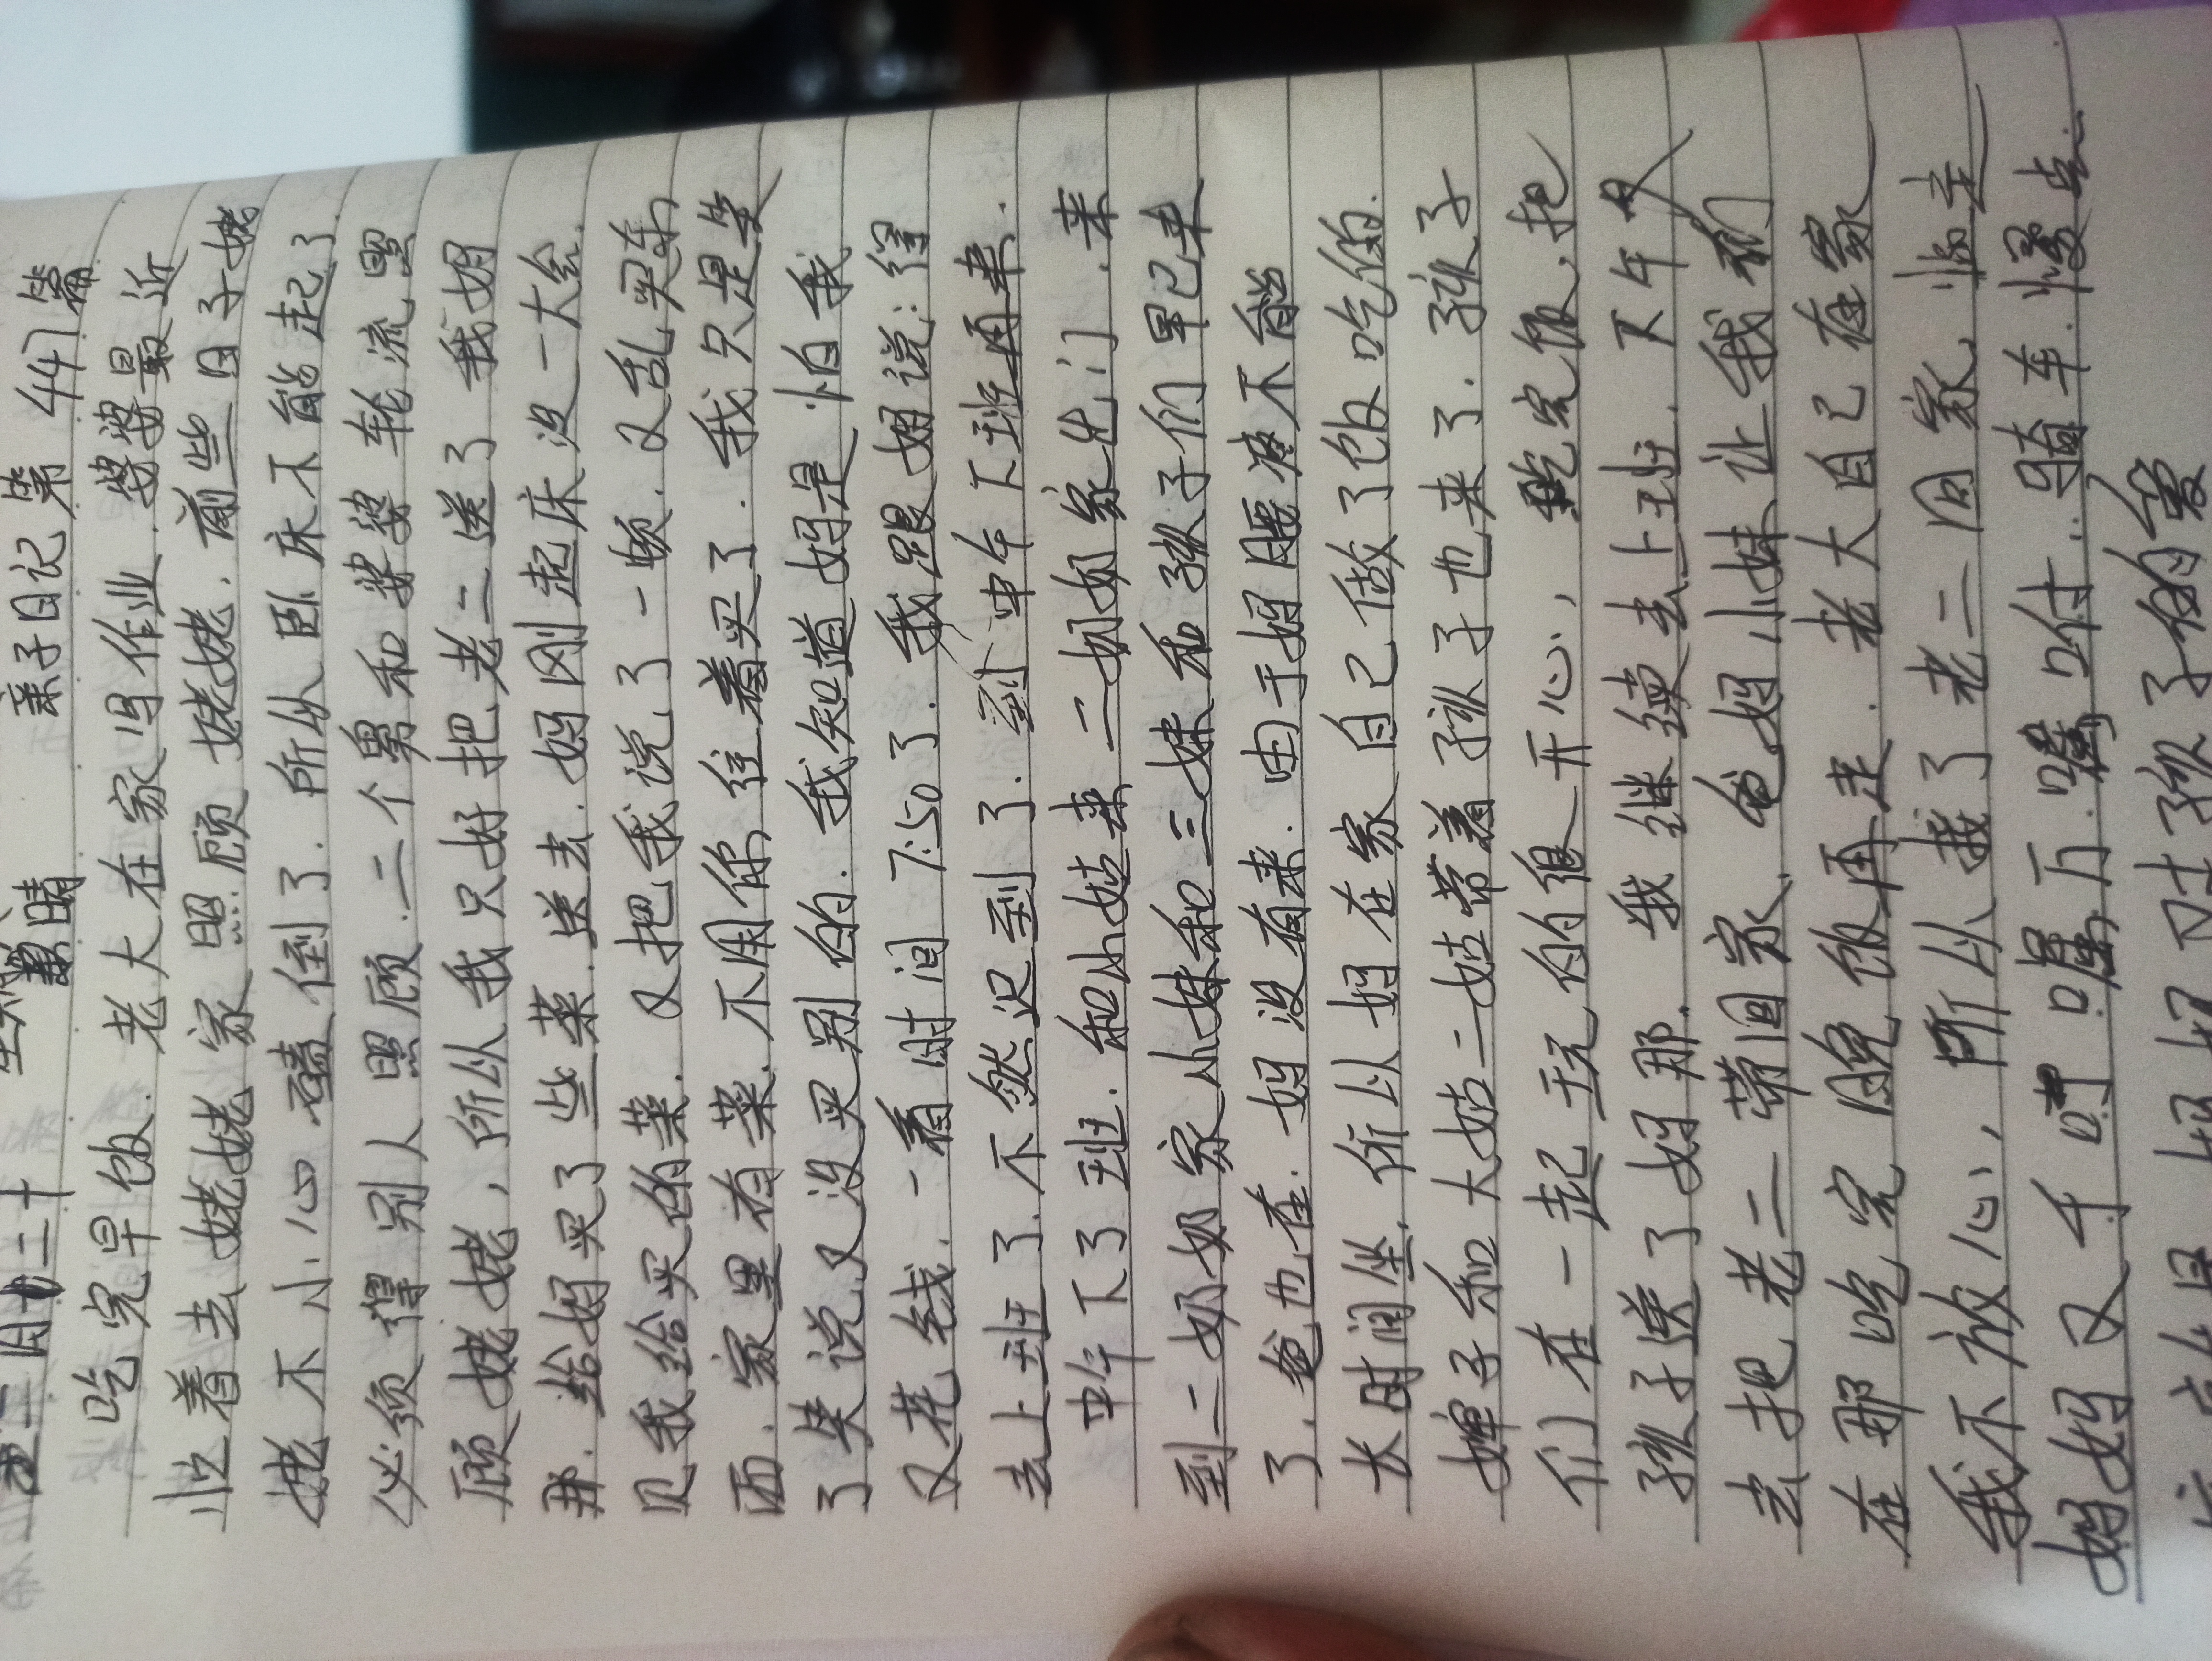 周二十 晴 亲子日记 第447篇
吃完早饭.老大在家写作业.婆婆最近
忙着去姥姥家照顾姥姥.前些日子姥
姥不小心磕倒了.所以卧床不能起了.
必须得别人照顾.二个舅和婆婆轮流照
顾姥姥,所以我只好把老二送了我妈
那.给妈买了些菜送去.妈刚起床没一大会.
见我给买的菜.又把我说了一顿.又乱买东
西.家里有菜.不用你往着买了.我只是笑
了笑说又没买别的.我知道妈是怕我
又花钱.一看时间7:50了.我跟妈说:得
去上班了.不然迟到了.到中午下班再来.
中午下了班.和小姑来二奶奶家出门.来
到二奶奶家小妹和三妹和孩子们早已来
了.爸也在.妈没有来.由于妈腰疼不能
长时间坐.所以妈在家自己做了饭吃的.
婶子和大姑二姑带着孩子也来了.孩子
们在一起玩的很开心,吃完饭,把
孩子送了妈那.我继续去上班.下午又
去把老二带回家.爸妈小妹让我们
在那吃完晚饭再走.老大自己在家
我不放心,所以接了老二回家,临走
妈妈又千叮嘱万嘱咐.骑车.慢点.
妈妈对孩子的爱